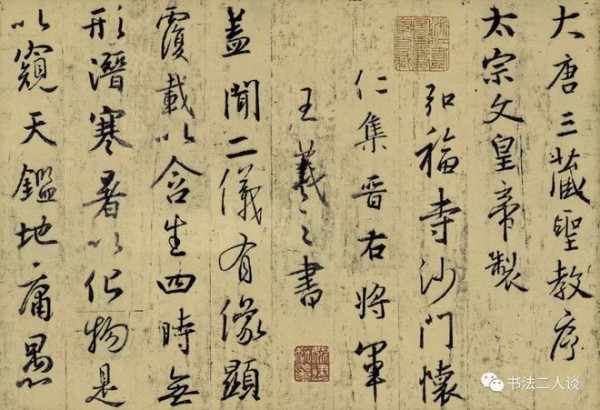 大唐三藏聖教序
太宗文皇帝製
弘福寺沙門懷
仁集晋右將軍
王羲之書
蓋聞二儀有像顯
覆載以含生四時無
形潛寒暑以化物是
以窺天鑑地庸愚
书法二人谈